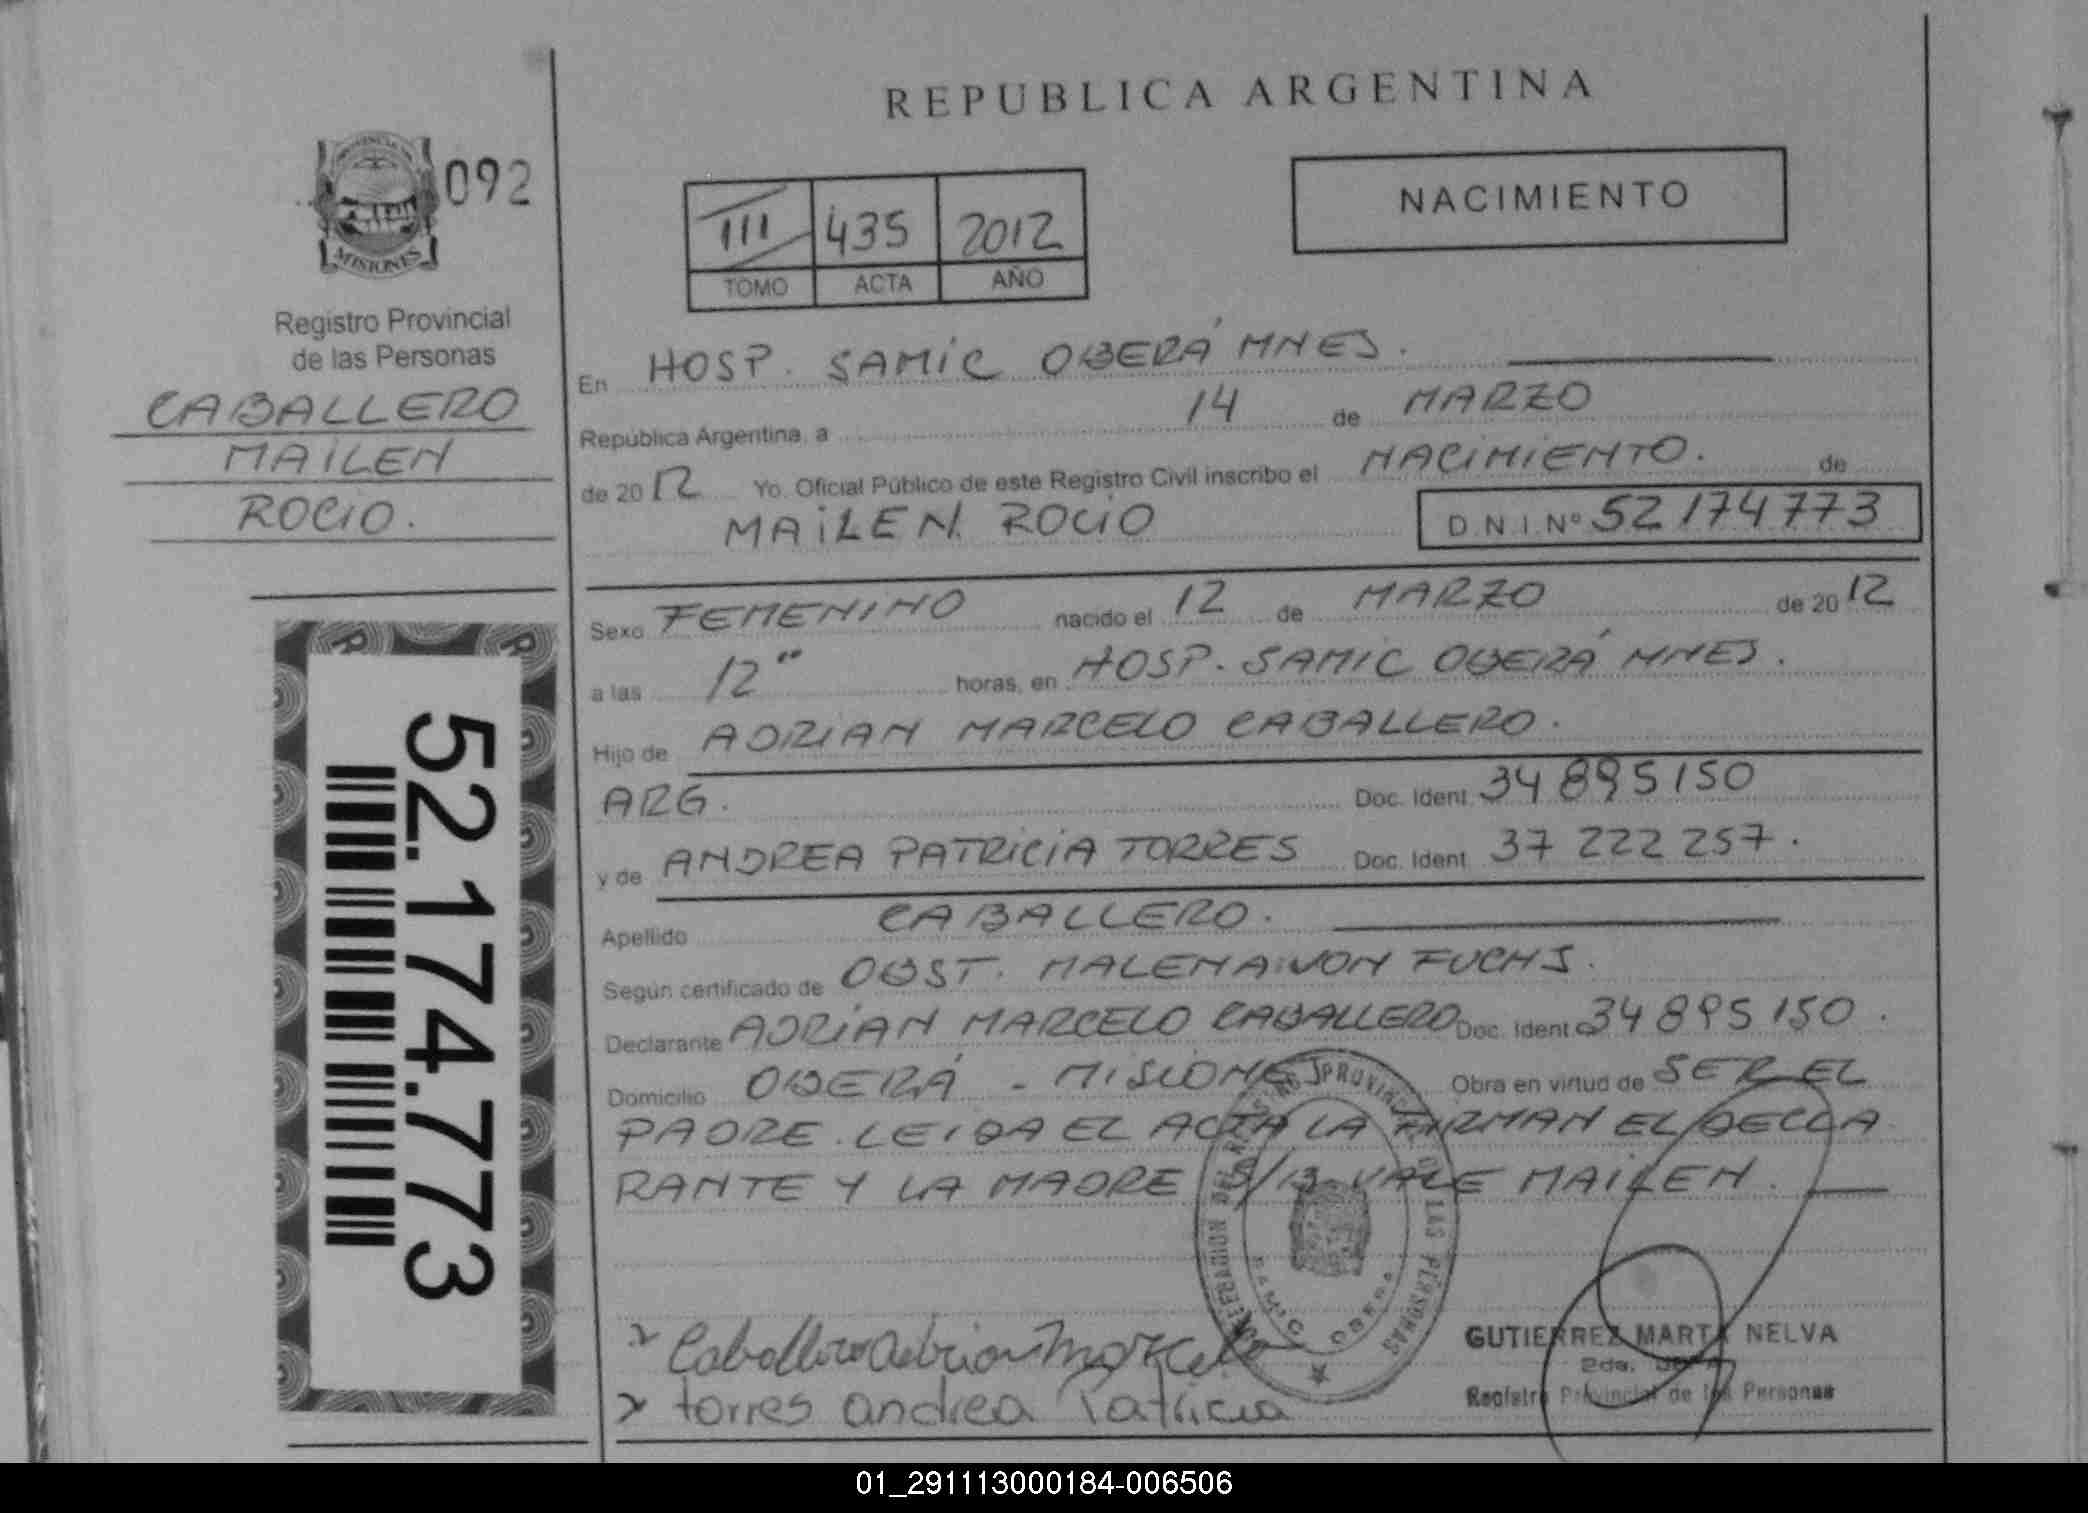 REPUBLICA ARGENTINA
092
MISIONES
Registro Provincial
de las Personas
CABALLERO
MAILEN
ROCIO.
52.174.773
III 435 2012
TOMO ACTA AÑO
NACIMIENTO
En HOSP. SAMIC OBERÁ MNES.
República Argentina, a 14 de MARZO
de 2012 Yo. Oficial Público de este Registro Civil inscribo el NACIMIENTO. de
MAILEN ROCIO D.N.I.Nº 52174773
Sexo FEMENINO nacido el 12 de MARZO de 2012
a las 12 horas, en HOSP. SAMIC OBERÁ MNES.
Hijo de ADRIAN MARCELO CABALLERO.
ARG. Doc. Ident. 34895150
y de ANDREA PATRICIA TORRES Doc. Ident. 37 222 257.
Apellido CABALLERO.
Según certificado de OBST. MALENA VON FUCHS.
Declarante ADRIAN MARCELO CABALLERO Doc. Ident. 34895150.
Domicilio OBERÁ - MISIONES Obra en virtud de SER EL
PADRE. LEIDA EL ACTA LA FIRMAN EL DECLA
RANTE Y LA MADRE S/B VALE MAILEN.
Caballero Adrian Marcelo
torres andrea Patricia
PROVINCIAL DE LAS PERSONAS
SAMIC OBERA
GUTIERREZ MARTA NELVA
Registro Provincial de las Personas
01_291113000184-006506